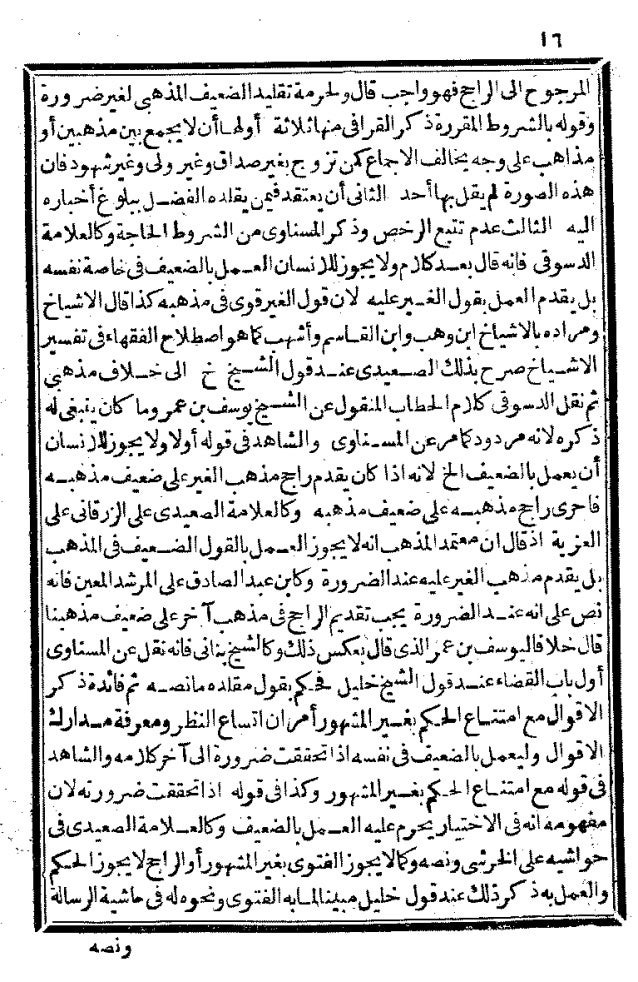 ١٦
المرجوح الى الراجح فهو واجب قال ولحرمة تقليد الضعيف المذهبى لغير ضرورة
وقوله بالشروط المقررة ذكر القرافى منها ثلاثة أولها أن لا يجمع بين مذهبين أو
مذاهب على وجه يخالف الاجماع كمن تزوج بغير صداق وغير ولى وغير شهود فان
هذه الصورة لم يقل بها أحد الثانى أن يعتقد فيمن يقلده الفضل ببلوغ أخباره
اليه الثالث عدم تتبع الرخص وذكر المسناوى من الشروط الحاجة وكالعلامة
الدسوقى فانه قال بعد كلام ولا يجوز للانسان العمل بالضعيف فى خاصة نفسه
بل يقدم العمل بقول الغير عليه لان قول الغير قوى فى مذهبه كذا قال الاشياخ
ومراده بالاشياخ ابن وهب وابن القاسم وأشهب كما هو اصطلاح الفقهاء فى تفسير
الاشياخ صرح بذلك الصعيدى عند قول الشيخ خ الى خلاف مذهبى
ثم نقل الدسوقى كلام الحطاب المنقول عن الشيخ يوسف بن عمر وما كان ينبغى له
ذكره لانه مردود كما مر عن المسناوى والشاهد فى قوله أولا ولا يجوز للانسان
أن يعمل بالضعيف الخ لانه اذا كان يقدم راجح مذهب الغير على ضعيف مذهبه
فاحرى راجح مذهبه على ضعيف مذهبه وكالعلامة الصعيدى على الزرقانى على
العزية اذ قال ان معتمد المذهب انه لا يجوز العمل بالقول الضعيف فى المذهب
بل يقدم مذهب الغير عليه عند الضرورة وكابن عبد الصادق على المرشد المعين فانه
نص على انه عند الضرورة يجب تقديم الراجح فى مذهب آخر على ضعيف مذهبنا
قال خلافا ليوسف بن عمر الذى قال بعكس ذلك وكالشيخ بنانى فانه نقل عن المسناوى
أول باب القضاء عند قول الشيخ خليل فحكم بقول مقلده ما نصه ثم فائدة ذكر
الاقوال مع امتناع الحكم بغير المشهور أمران اتساع النظر ومعرفة مدارك
الاقوال وليعمل بالضعيف فى نفسه اذا تحققت ضرورة الى آخر كلامه والشاهد
فى قوله مع امتناع الحكم بغير المشهور وكذا فى قوله اذا تحققت ضرورته لان
مفهومه انه فى الاختيار يحرم عليه العمل بالضعيف وكالعلامة الصعيدى فى
حواشيه على الخرشى ونصه وكما لا يجوز الفتوى بغير المشهور أو الراجح لا يجوز الحكم
والعمل به ذكر ذلك عند قول خليل مبينا لما به الفتوى ونحوه له فى حاشية الرسالة
ونصه